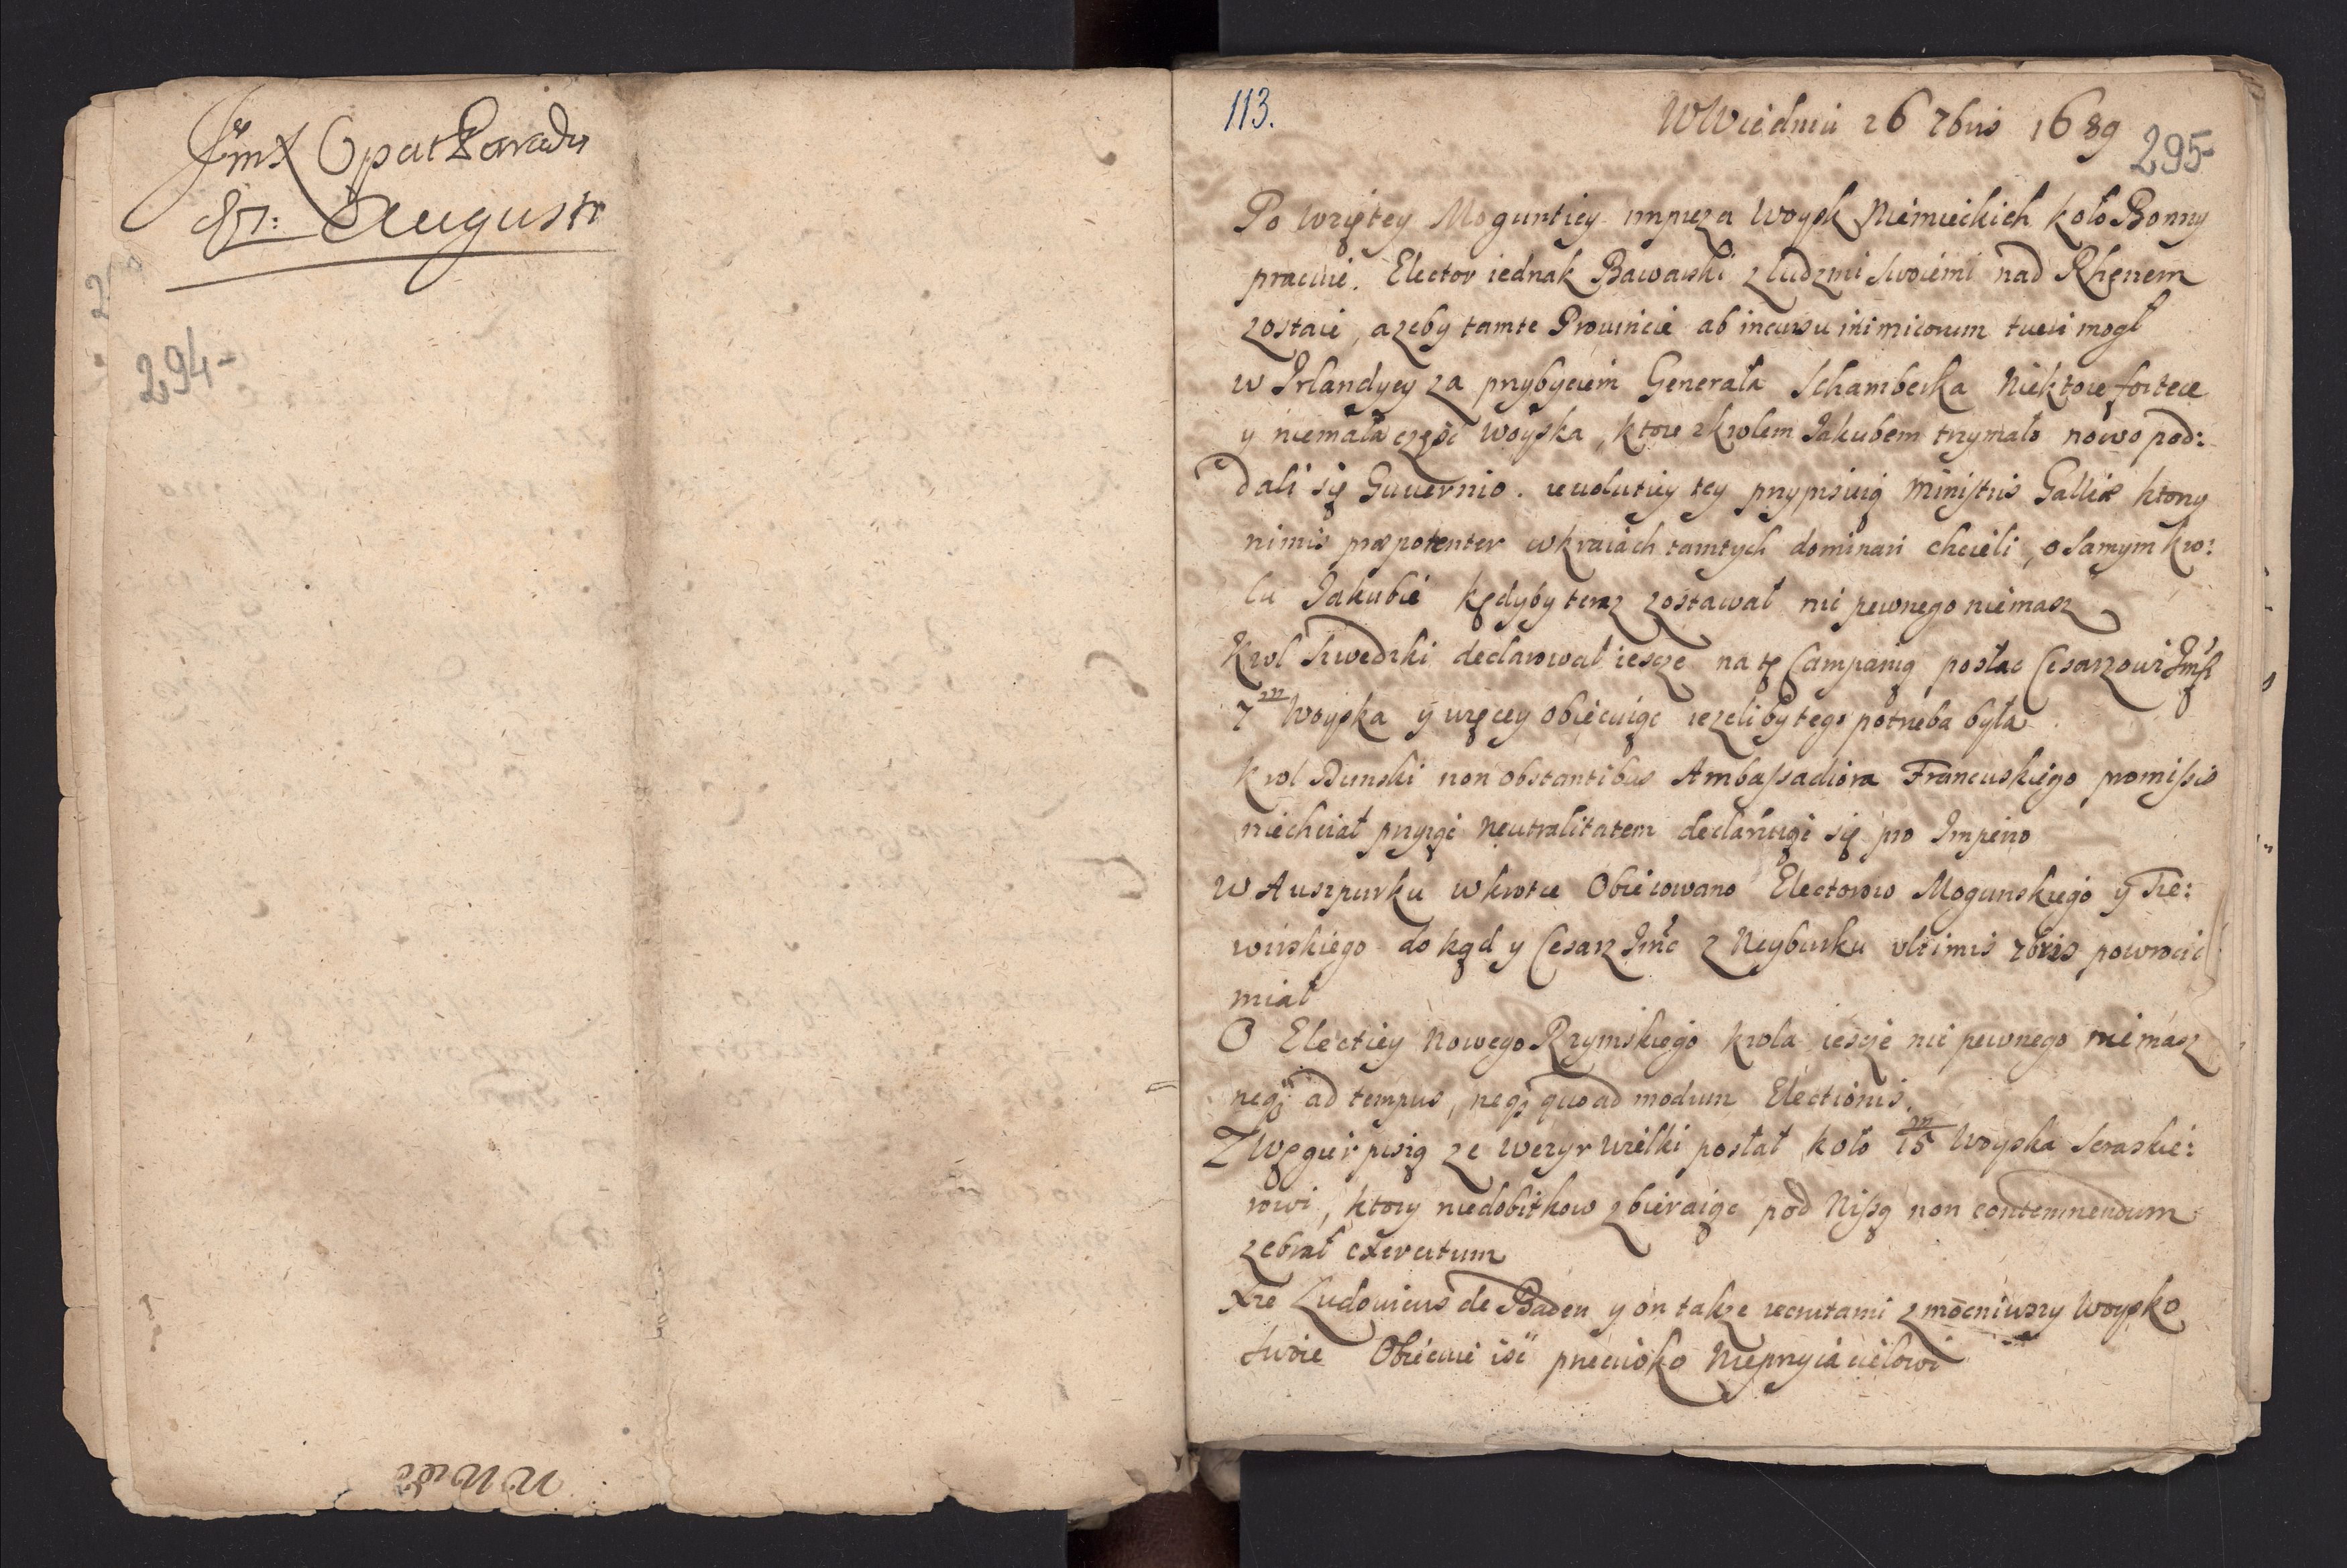 JmX Opat
87: Augusti
294-
113.
W Wiedniu 26 7bris 1689
295-
Po wziętey Moguntiey impreza Woysk Niemieckich koło Bonny
pracuie. Elector iednak Bawarski z ludzmi swoiemi nad Rhenem
zostaie, azeby tamte Prowincie ab incursu inimicorum tueri mogł
w Irlandyey za przybyciem Generała Schamberka Niektore fortece
y niemała częsc Woyska, ktore z krolem Jakubem trzymało nowo pod:
dali się Guuernio. reuolutiey tey przypisuią ministris Galliæ ktorzy
nimis præpotenter w kraiach tamtych dominari chcieli, o samym kro:
lu Jakubie kędyby teraz zostawał nic pewnego niemasz
Krol Szwedzki declarował iescze na tę Campanią posłac Cesarzowi Jmsci
7 m Woyska y więcey obiecuiąc iezeliby tego potrzeba była
Krol Dunski non obstantibus Ambassadiora Francuskiego promissis
niechciał przyiąc neutralitatem declaruiąc się pro Imperio
W Auszpurku w krotce Obiecowano Electorow Mogunskiego y Tre:
wirskiego do kąd y Cesarz Jmc z Neyburku vltimis 7bris powrocic
miał
O Electiey Nowego Rzymskiego krola iescze nic pewnego niemasz
neq; ad tempus, neq; quo ad modum Electionis.
Z Węgier piszą ze Wezyr wielki posłał koło 15 m Woyska Seraskie:
rowi, ktory niedobitkow zbieraiąc pod Nissą non contemnendum
zebrał exercitum
Xze Ludouicus de Baden y on takze recrutami zmocniwszy Woysko
swoie Obiecuie isc przeciwko Nieprzyiacielowi